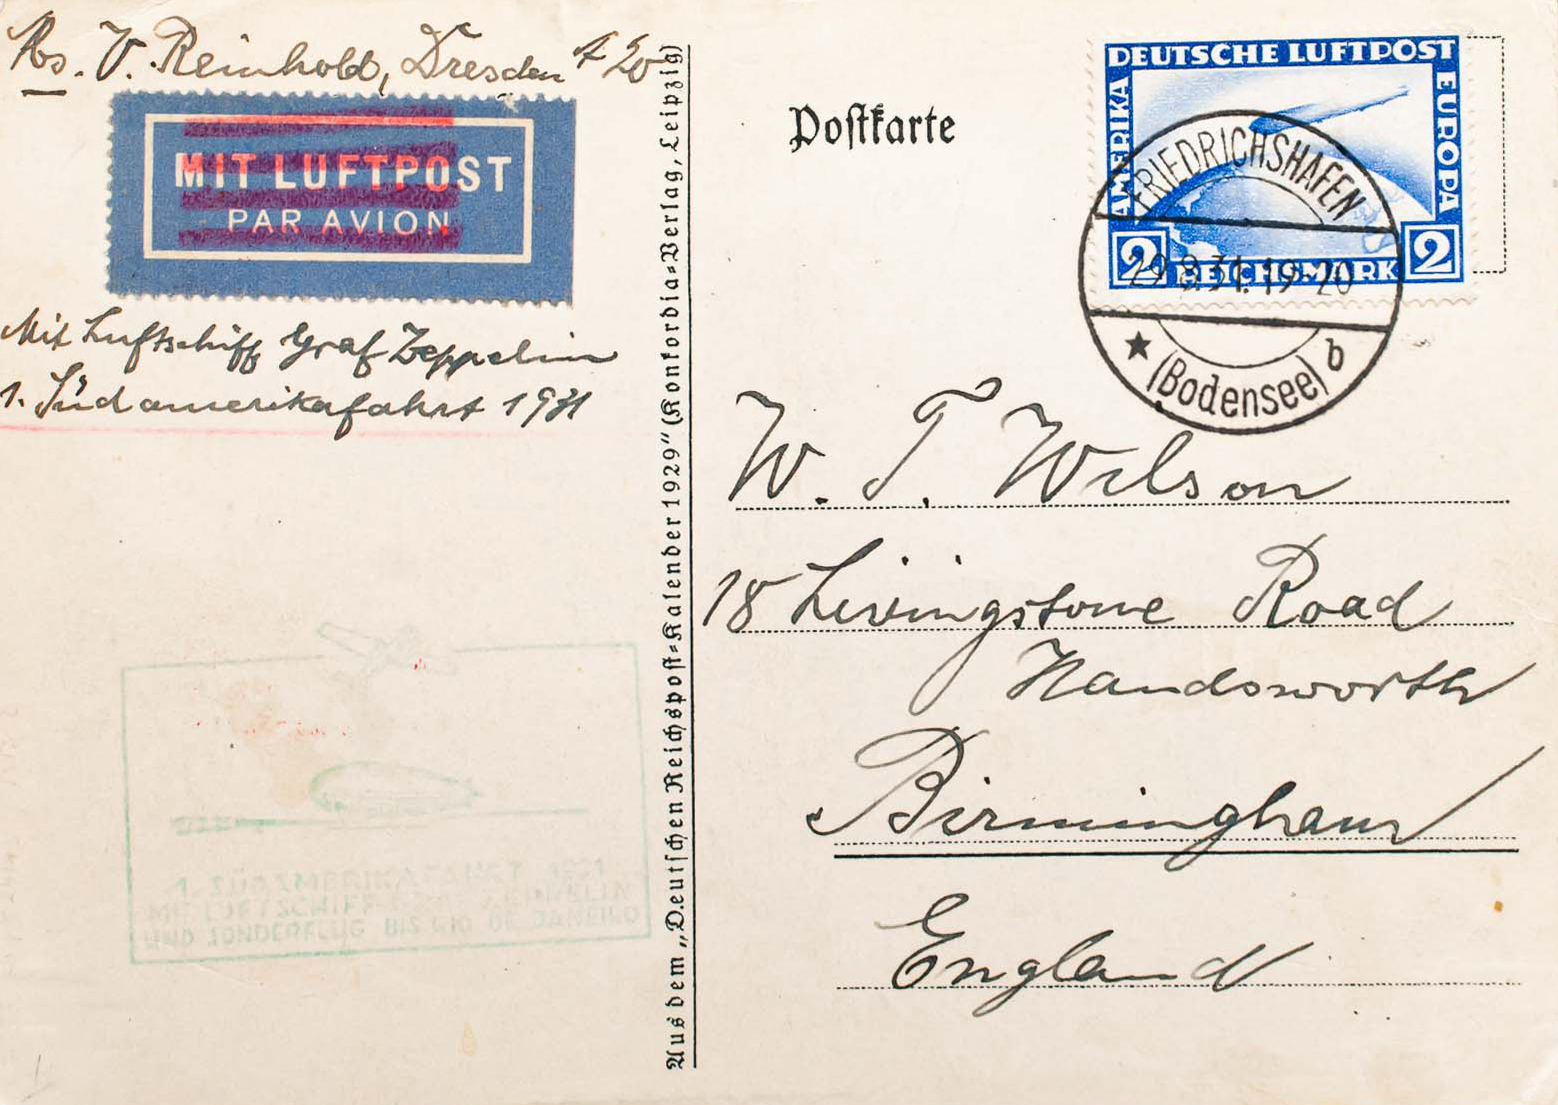 V. Reinhold, Dresden A 20
MIT LUFTPOST
PAR AVION
Mit Luftschiff Graf Zeppelin
1. Südamerikafahrt 1931
1. SÜDAMERIKAFAHRT 1931
MIT LUFTSCHIFF GRAF ZEPPELIN
UND SONDERFLUG BIS RIO DE JANEIRO
Aus dem „Deutschen Reichspost-Kalender 1929“ (Konkordia-Verlag, Leipzig)
Postkarte
DEUTSCHE LUFTPOST
AMERIKA
EUROPA
2 REICHSMARK 2
FRIEDRICHSHAFEN
29.8.31.19-20
(Bodensee) b
W. T. Wilson
18 Livingstone Road
Handsworth
Birmingham
England